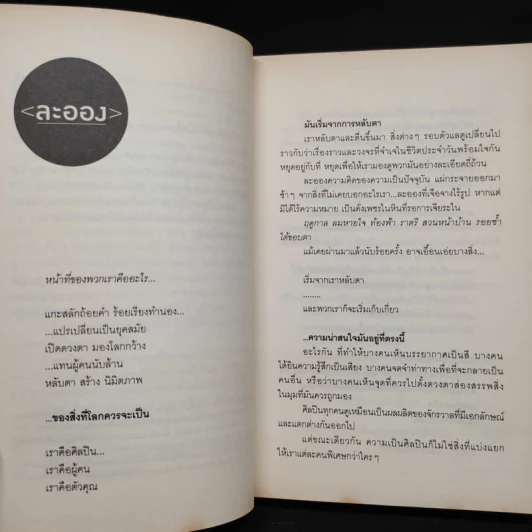 <ละออง>
หน้าที่ของพวกเราคืออะไร...
แกะสลักถ้อยคำ ร้อยเรียงทำนอง...
...แปรเปลี่ยนเป็นยุคสมัย
เปิดดวงตา มองโลกกว้าง
...แทนผู้คนนับล้าน
หลับตา สร้าง นิมิตภาพ
...ของสิ่งที่โลกควรจะเป็น
เราคือศิลปิน...
เราคือผู้คน
เราคือตัวคุณ
มันเริ่มจากการหลับตา
เราหลับตาและตื่นขึ้นมา สิ่งต่างๆ รอบตัวแลดูเปลี่ยนไป
ราวกับว่าเรื่องราวและวงจรที่จำเจในชีวิตประจำวันพร้อมใจกัน
หยุดอยู่กับที่ หยุดเพื่อให้เรามองดูพวกมันอย่างละเอียดถี่ถ้วน
ละอองความคิดของความเป็นปัจจุบัน แผ่กระจายออกมา
ช้าๆ จากสิ่งที่ไม่เคยบอกอะไรเรา...ละอองที่เจือจางไร้รูป หากแต่
มิได้ไร้ความหมาย เป็นดั่งเพชรในหินที่รอการเจียระไน
ฤดูกาล ลมหายใจ ท้องฟ้า ราตรี สวนหน้าบ้าน รอยช้ำ
ใต้ขอบตา
แม้เคยผ่านมาแล้วนับร้อยครั้ง อาจเอื้อนเอ่ยบางสิ่ง...
เริ่มจากเราหลับตา
........
และพวกเราก็จะเริ่มเก็บเกี่ยว
...ความน่าสนใจมันอยู่ที่ตรงนี้
อะไรกัน ที่ทำให้บางคนเห็นบรรยากาศเป็นสี บางคน
ได้ยินความรู้สึกเป็นเสียง บางคนจดจำท่าทางเพื่อที่จะกลายเป็น
คนอื่น หรือว่าบางคนเห็นจุดที่ควรไปตั้งดวงตาส่องสรรพสิ่ง
ในมุมที่มันควรถูกมอง
ศิลปินทุกคนดูเหมือนเป็นผลผลิตของจักรวาลที่มีเอกลักษณ์
และแตกต่างกันออกไป
แต่ขณะเดียวกัน ความเป็นศิลปินก็ไม่ใช่สิ่งที่แบ่งแยก
ให้เราแต่ละคนพิเศษกว่าใครๆ